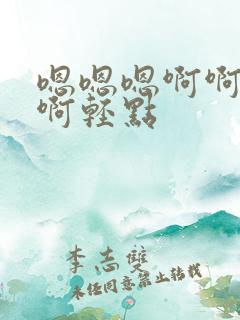 嗯嗯嗯啊啊
啊轻點
李志雙
未任同意禁止转载